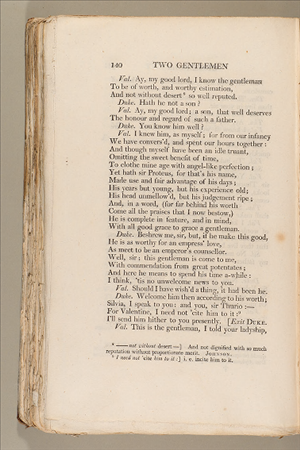 140 TWO GENTLEMEN
Val. Ay, my good lord, I know the gentleman
To be of worth, and worthy estimation,
And not without desert⁸ so well reputed.
Duke. Hath he not a son?
Val. Ay, my good lord; a son, that well deserves
The honour and regard of such a father.
Duke. You know him well?
Val. I knew him, as myself; for from our infancy
We have convers'd, and spent our hours together:
And though myself have been an idle truant,
Omitting the sweet benefit of time,
To clothe mine age with angel-like perfection;
Yet hath sir Proteus, for that's his name,
Made use and fair advantage of his days;
His years but young, but his experience old;
His head unmellow'd, but his judgement ripe;
And, in a word, (for far behind his worth
Come all the praises that I now bestow,)
He is complete in feature, and in mind,
With all good grace to grace a gentleman.
Duke. Beshrew me, sir, but, if he make this good,
He is as worthy for an empress' love,
As meet to be an emperor's counsellor.
Well, sir; this gentleman is come to me,
With commendation from great potentates;
And here he means to spend his time a-while:
I think, 'tis no unwelcome news to you.
Val. Should I have wish'd a thing, it had been he.
Duke. Welcome him then according to his worth;
Silvia, I speak to you: and you, sir Thurio:—
For Valentine, I need not 'cite him to it:⁹
I'll send him hither to you presently. [Exit DUKE.
Val. This is the gentleman, I told your ladyship,
⁸ —— not without desert—] And not dignified with so much
reputation without proportionate merit. JOHNSON.
⁹ I need not 'cite him to it:] i. e. incite him to it.